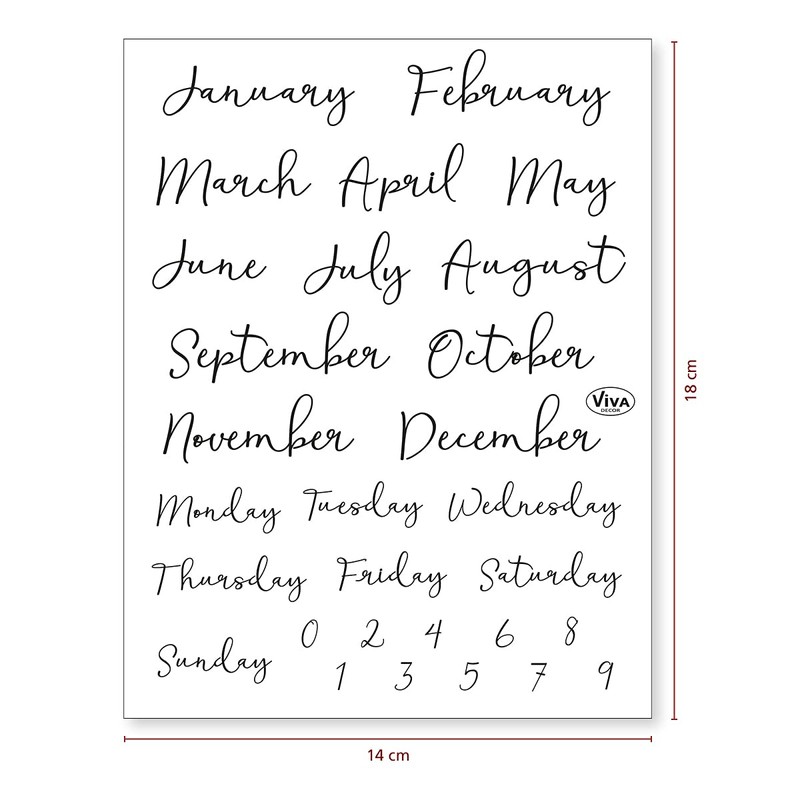 January February
March April May
June July August
September October
VIVA
DECOR
November December
Monday Tuesday Wednesday
Thursday Friday Saturday
Sunday 0 2 4 6 8
1 3 5 7 9
18 cm
14 cm